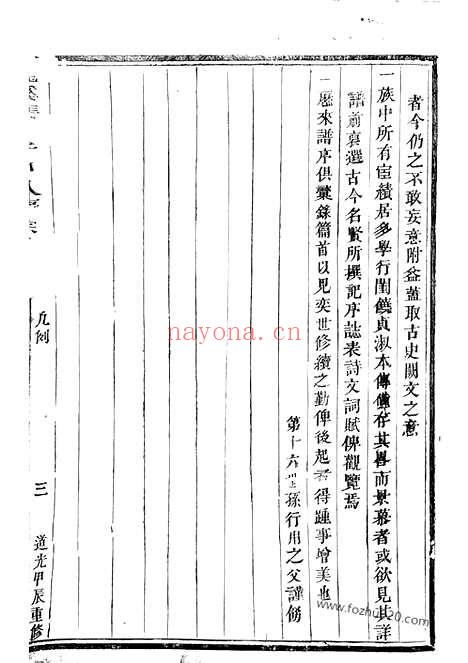 者今仍之不敢妄意附益蓋取古史闕文之意
一族中所有宦績居多學行閨饒貞淑本傳僅存其畧而景慕者或欲見其詳
譜前裒選古今名賢所撰記序誌表詩文詞賦俾觀覽焉
一歷來譜序俱彙錄篇首以見奕世修續之勤俾後起者得踵事增美也
第十六世孫行用之父謹傚
凡例
三
道光甲辰重修
nayona.cn
www.fozhu920.com